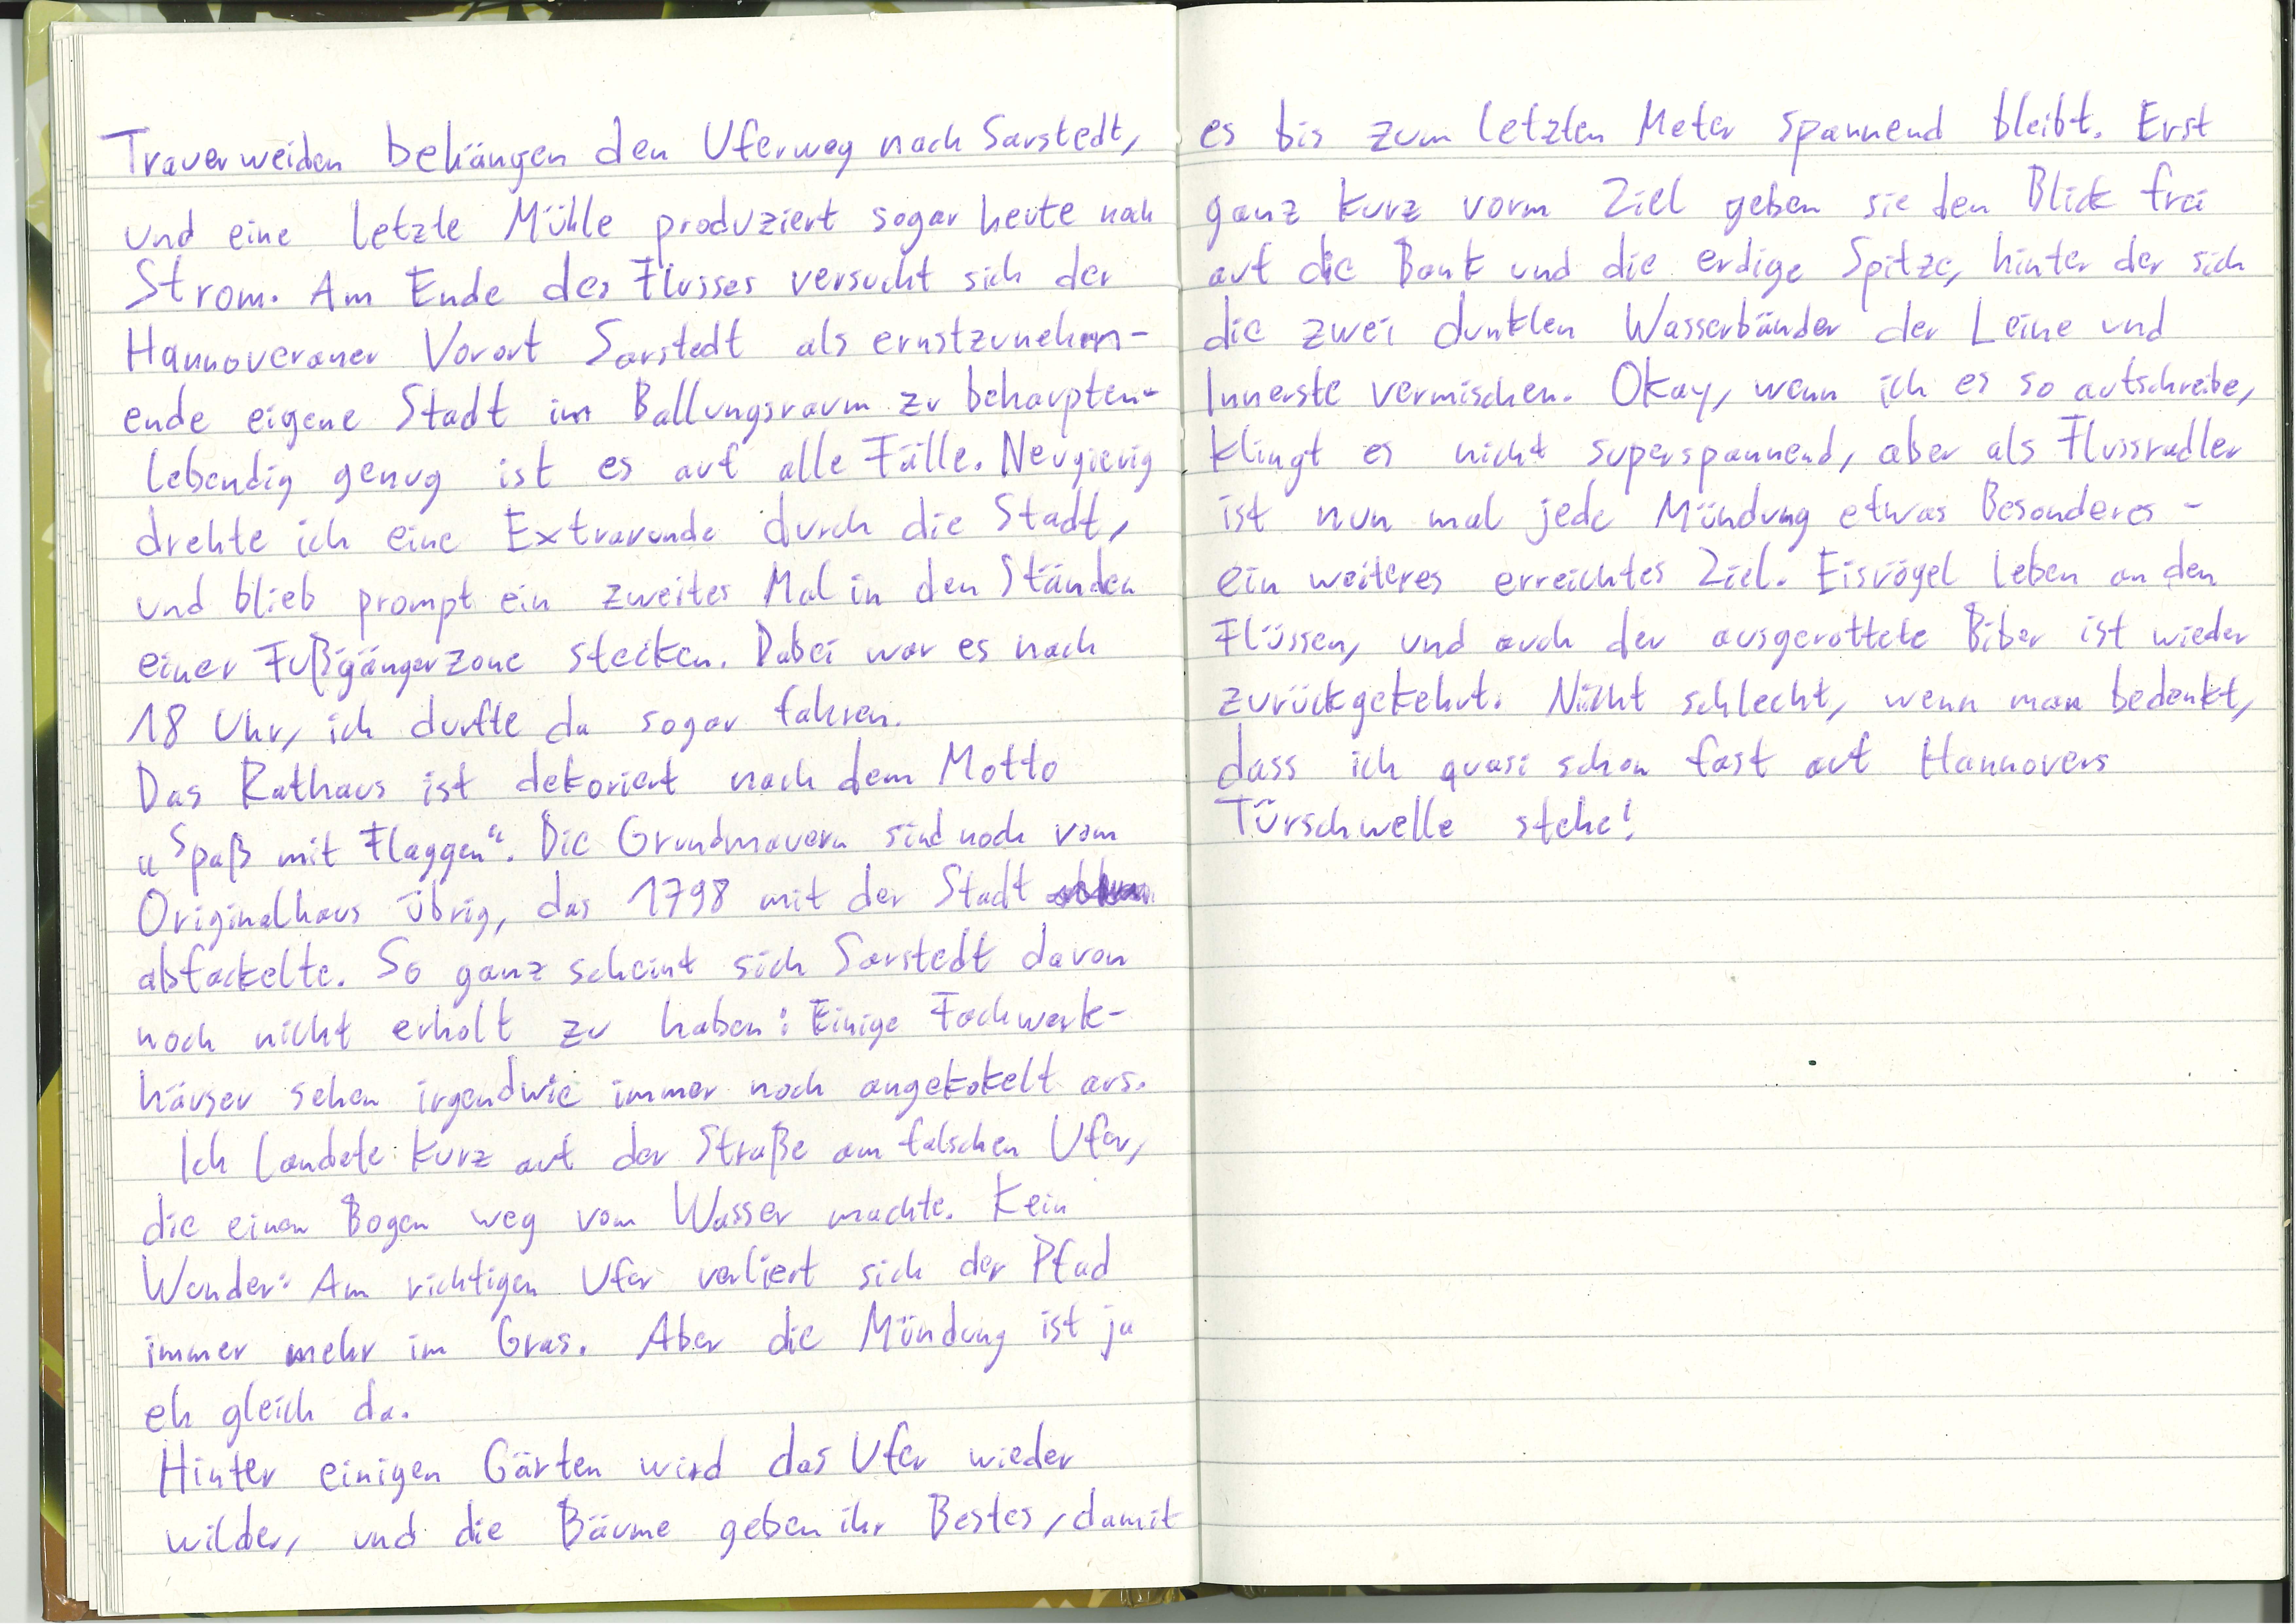 Trauerweiden behängen den Uferweg nach Sarstedt,
und eine letzte Mühle produziert sogar heute noch
Strom. Am Ende des Flusses versucht sich der
Hannoveraner Vorort Sarstedt als ernstzunehm-
ende eigene Stadt im Ballungsraum zu behaupten-
lebendig genug ist es auf alle Fälle. Neugierig
drehte ich eine Extrarunde durch die Stadt,
und blieb prompt ein zweites Mal in den Ständen
einer Fußgängerzone stecken. Dabei war es nach
18 Uhr, ich durfte da sogar fahren.
Das Rathaus ist dekoriert nach dem Motto
„Spaß mit Flaggen“. Die Grundmauern sind noch vom
Originalhaus übrig, das 1798 mit der Stadt
abfackelte. So ganz scheint sich Sarstedt davon
noch nicht erholt zu haben: Einige Fachwerk-
häuser sehen irgendwie immer noch angekokelt aus.
Ich landete kurz auf der Straße am falschen Ufer,
die einen Bogen weg vom Wasser machte. Kein
Wunder: Am richtigen Ufer verliert sich der Pfad
immer mehr im Gras. Aber die Mündung ist ja
eh gleich da.
Hinter einigen Gärten wird das Ufer wieder
wilder, und die Bäume geben ihr Bestes, damit
es bis zum letzten Meter spannend bleibt. Erst
ganz kurz vorm Ziel geben sie den Blick frei
auf die Bank und die erdige Spitze, hinter der sich
die zwei dunklen Wasserbänder der Leine und
Innerste vermischen. Okay, wenn ich es so aufschreibe,
klingt es nicht superspannend, aber als Flussradler
ist nun mal jede Mündung etwas Besonderes -
ein weiteres erreichtes Ziel. Eisvögel leben an den
Flüssen, und auch der ausgerottete Biber ist wieder
zurückgekehrt. Nicht schlecht, wenn man bedenkt,
dass ich quasi schon fast auf Hannovers
Türschwelle stehe!